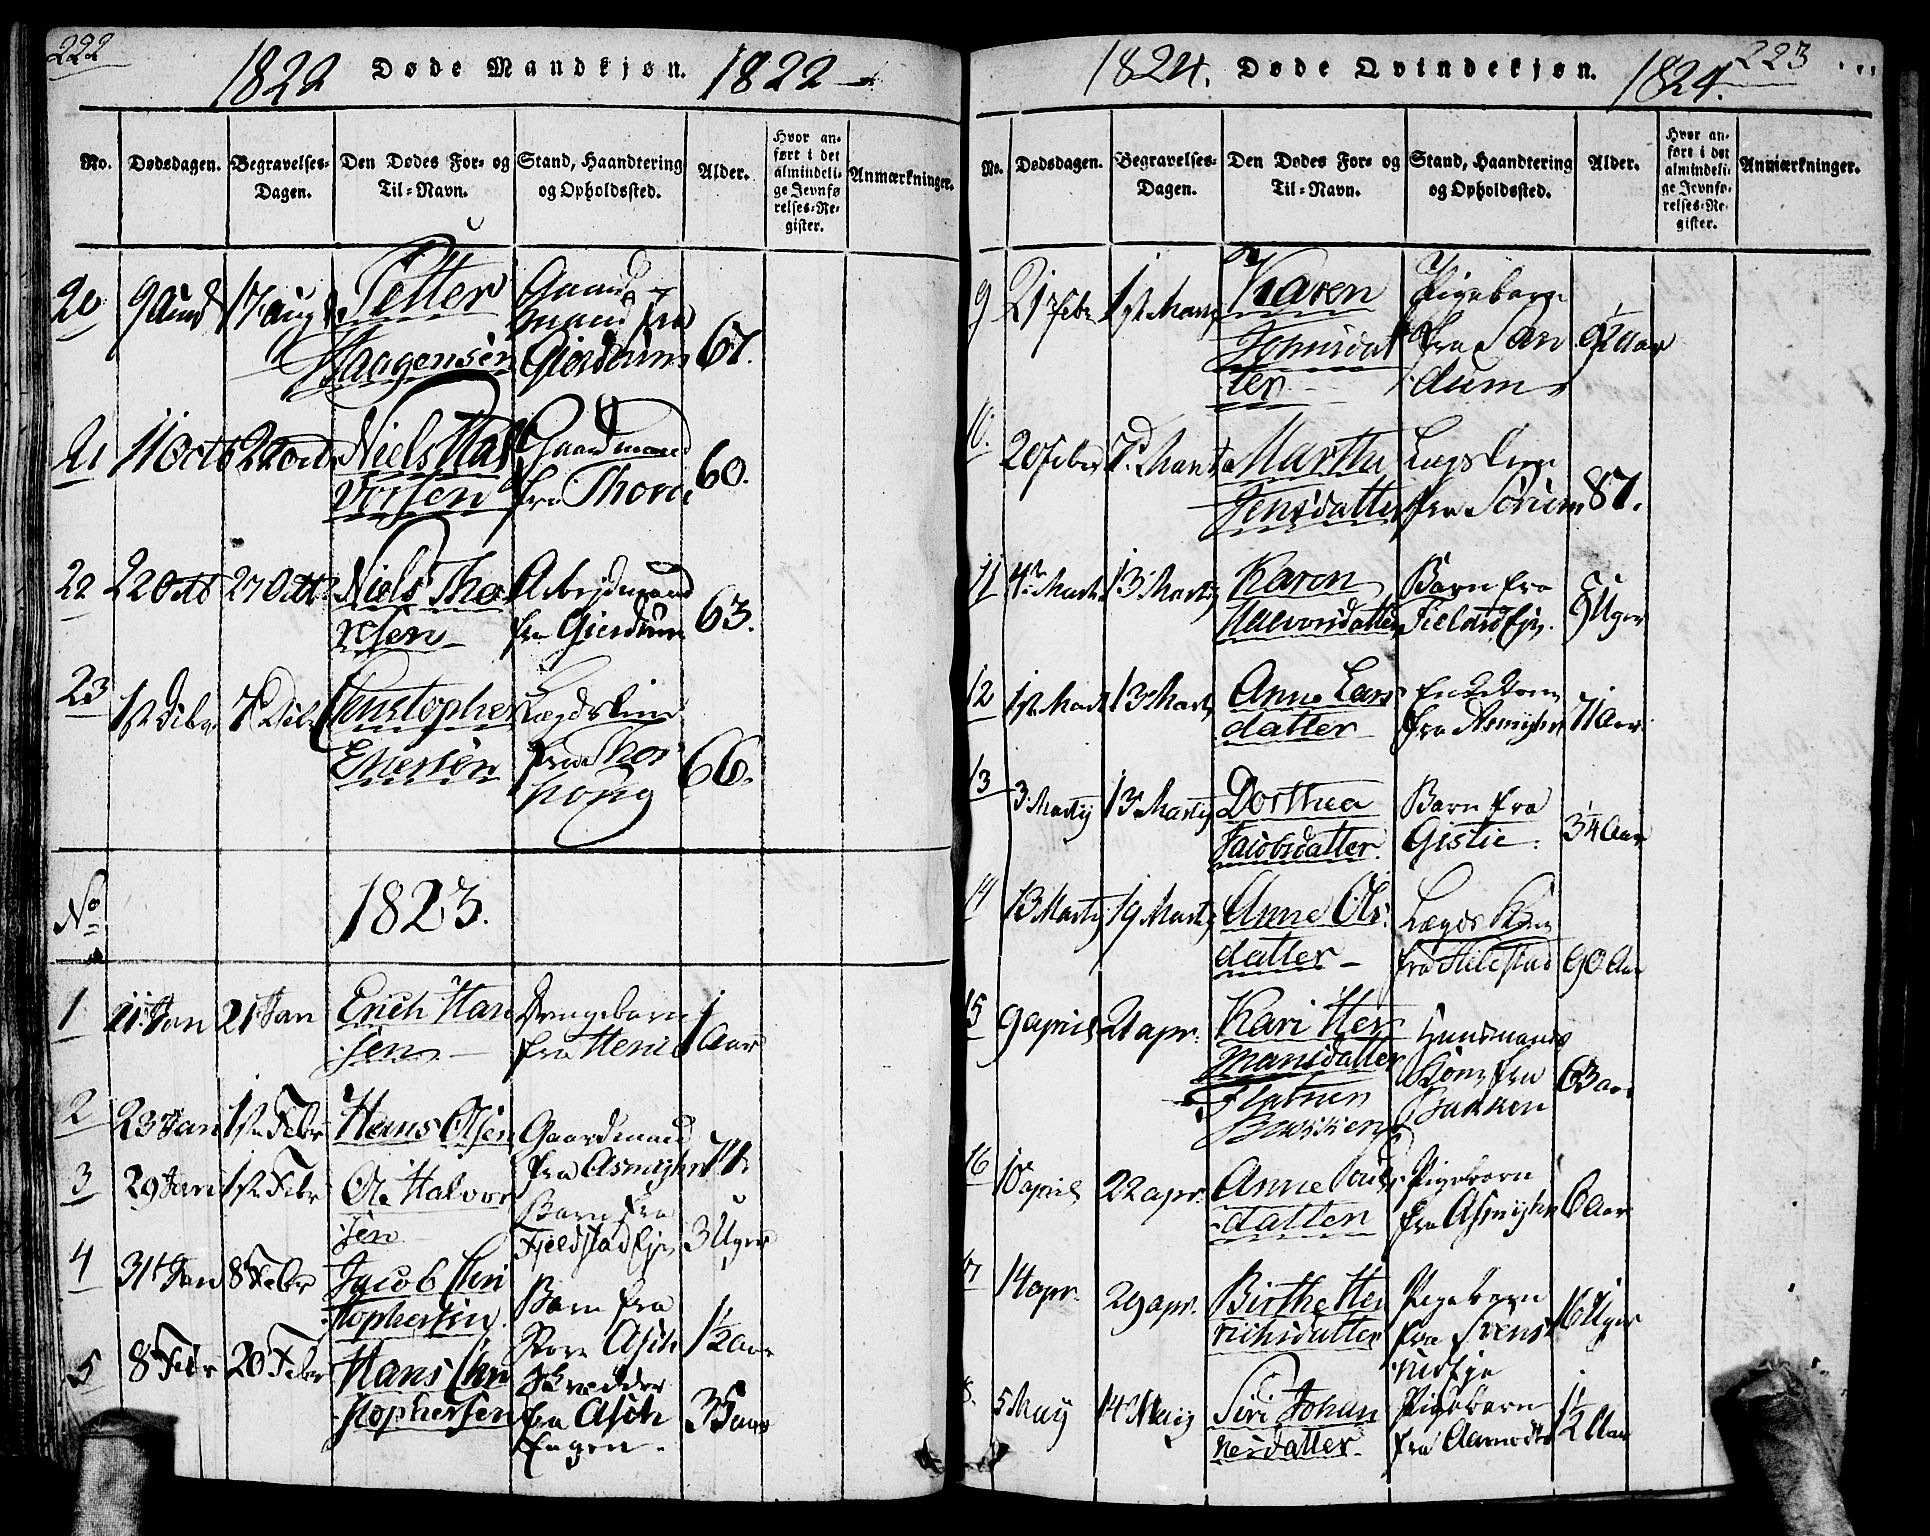 222
1822 Døde Mandkjøn. 1822
No. Dødsdagen. Begravelses-Dagen. Den Dødes For- og Til-Navn. Stand, Haandtering og Opholdssted. Alder. Hvor anført i det almindelige Jevnførelses-Register. Anmærkninger.
20 17 aug Petter
Haagensen Giærdrum 67.
21 11 Octb Niels Hal
vorsen Gaardmand
fra 60.
22 22 Octb 27 Octb Niels Tho
resen Arbejdsmand
fra Gierdrum 63.
23 1st Debr 7 Debr Christopher
Lægdslem
fra Thor
houg 66.
No 1823.
1 11 Jan 21 Jan Erich Han
sen Drengebarn
fra 1 Aar
2 23 Jan 1st Febr Hans Olsen Gaardmand
fra Asmyhr
3 29 Jan 1st Febr Ole Halvor
sen Barn fra
Fjeldstad Eje 3 Uger
4 31t Jan 8 Febr Jacob Chri
stophersen Barn fra
Store Asch 1½ aar
5 8 Febr 20 Febr Hans Chri
stophersen Skredder
fra Asch
Engen. 35 aar
223
1824. Døde Qvindekjøn. 1824.
No. Dødsdagen. Begravelses-Dagen. Den Dødes For- og Til-Navn. Stand, Haandtering og Opholdssted. Alder. Hvor anført i det almindelige Jevnførelses-Register. Anmærkninger.
9 21 Febr 1st Marty Karen
Johnsdat
ter Pigebarn
fra San
dum
10. 20 Febr Martha
Jensdatter Lægslem
fra Sörum 87.
11 4de Marti 13 Marty Karen
Halvorsdatter Barn fra
Fieldstd Eje. Uger
12 1st Marti 13 Marty Anne Lars
datter
fra Asmyhr 71 Aar
13 3 Martij 13 Martij Dorthea
Jacobsdatter Barn fra
Gistie. 3¼ Aar
14 13 Martij 19 Martij Anne Ols
datter Lægdslem
fra Hilestad 90 Aar
15 9 april 21 apr. Kari Her
mansdatter
Huusmands
Kone fra
Bakken 63 aar
16 10 april 22 apr. Anne Pouls
datter Pigebarn
fra Asmyhr 6 Aar
17 14 apr. 29 apr. Birthe Hen
richsdatter Pigebarn
fra Svens
rud Eje 16 Uger
18. 5 Maij 14 Maij Siri Johan
nesdatter Pigebarn
fra Aamodt 1½ Aar